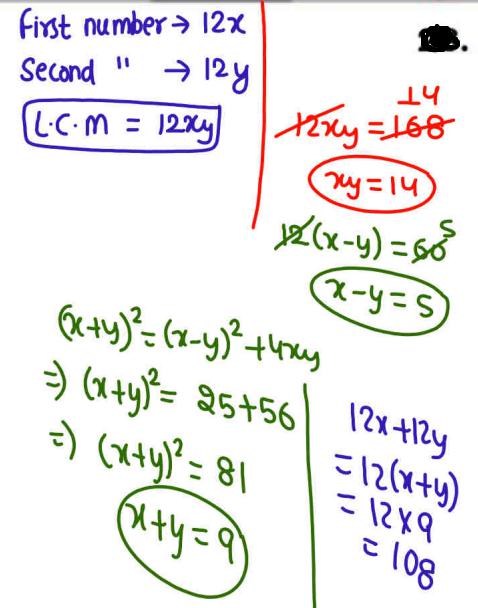 First number → 12x
Second " → 12y
L.C.M = 12xy
14
12xy = 168
xy = 14
5
12(x-y) = 60
x-y = 5
(x+y)² = (x-y)² + 4xy
⇒ (x+y)² = 25+56
⇒ (x+y)² = 81
x+y = 9
12x+12y
= 12(x+y)
= 12×9
= 108